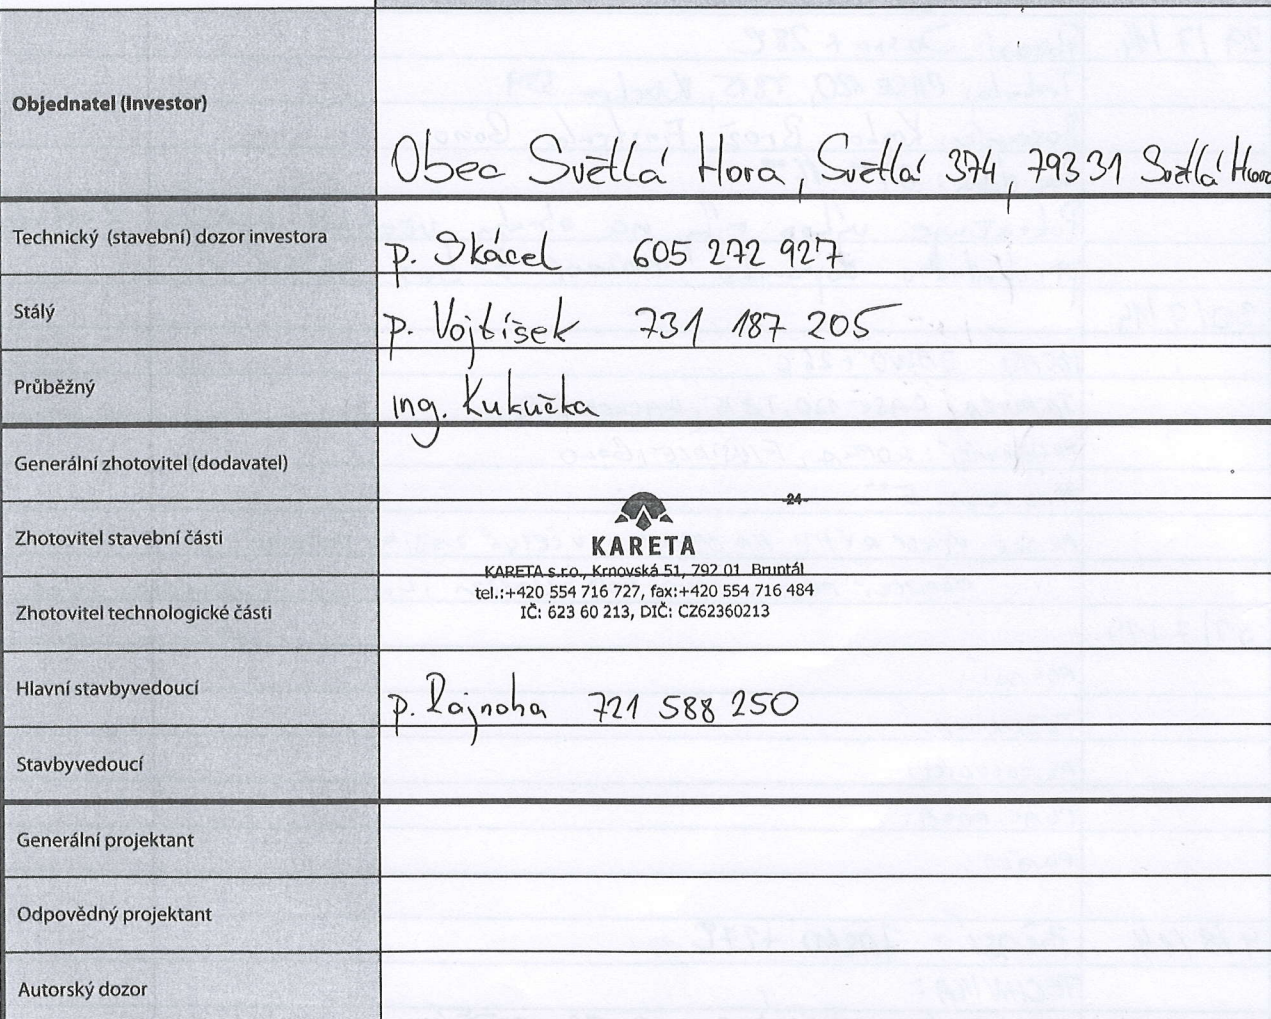 Objednatel (Investor)
Obec Světlá Hora, Světlá 374, 793 31 Světlá Hora
Technický (stavební) dozor investora
p. Skácel 605 272 927
Stálý
p. Vojtíšek 731 187 205
Průběžný
ing. Kukučka
Generální zhotovitel (dodavatel)
-24-
Zhotovitel stavební části
KARETA
KARETA s.r.o., Krnovská 51, 792 01 Bruntál
tel.:+420 554 716 727, fax:+420 554 716 484
Zhotovitel technologické části
IČ: 623 60 213, DIČ: CZ62360213
Hlavní stavbyvedoucí
p. Rajnoha 721 588 250
Stavbyvedoucí
Generální projektant
Odpovědný projektant
Autorský dozor